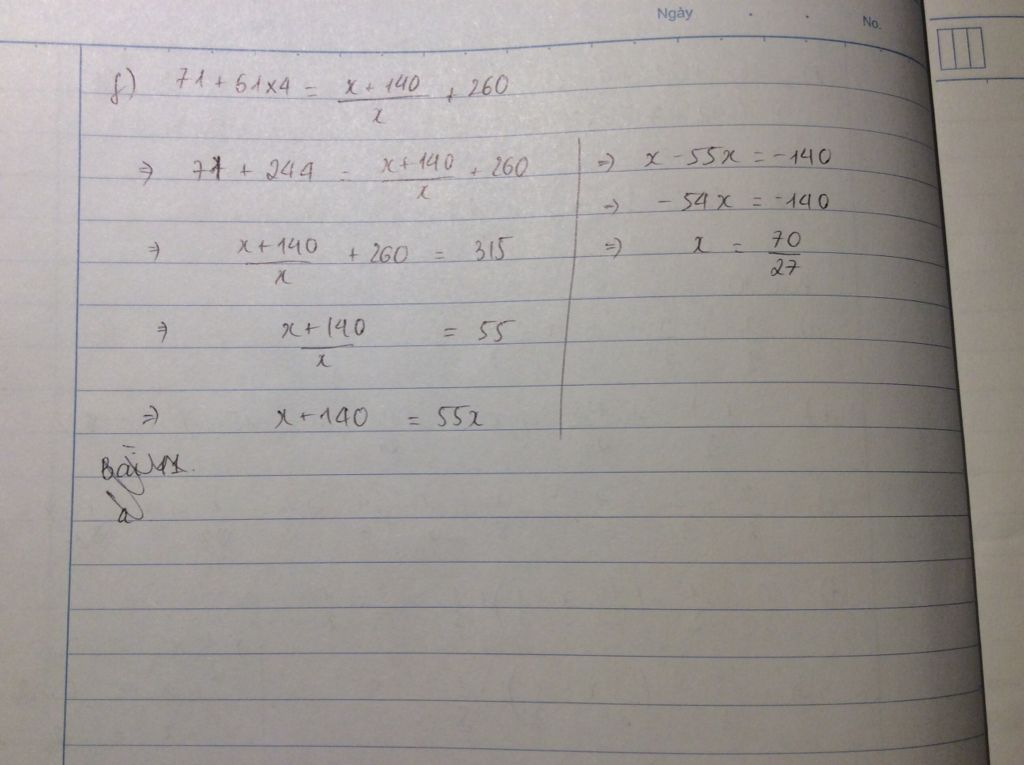 Ngày
No.
f) 71 + 61x4 = \frac{x + 140}{x} + 260
=> 71 + 244 = \frac{x+140}{x} + 260
=> \frac{x+140}{x} + 260 = 315
=> \frac{x+140}{x} = 55
=> x+140 = 55x
=> x - 55x = -140
=> - 54x = -140
=> x = \frac{70}{27}
Bài 11.
a